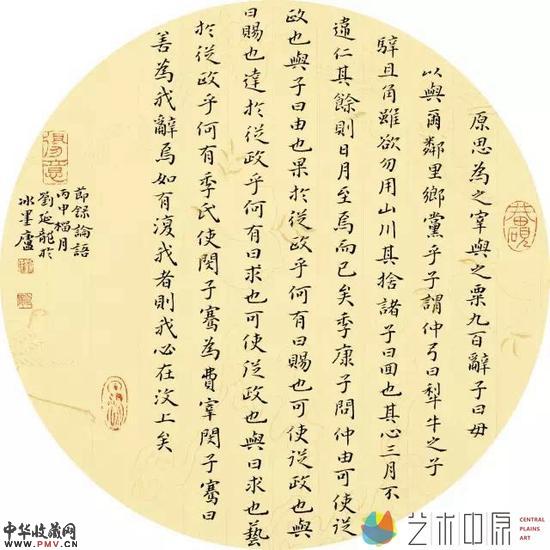 原思為之宰與之粟九百辭子曰毋
以與爾鄰里鄉黨乎子謂仲弓曰犁牛之子
騂且角雖欲勿用山川其捨諸子曰回也其心三月不
違仁其餘則日月至焉而已矣季康子問仲由可使從
政也與子曰由也果於從政乎何有曰賜也可使從政也與
曰賜也達於從政乎何有曰求也可使從政也與曰求也藝
於從政乎何有季氏使閔子騫為費宰閔子騫曰
善為我辭焉如有復我者則我心在汶上矣
節錄論語
丙申榴月
劉延龍於
冰墨廬
得意
中华收藏网
www.PMV.CN
艺术中原
CENTRAL
PLAINS
ART